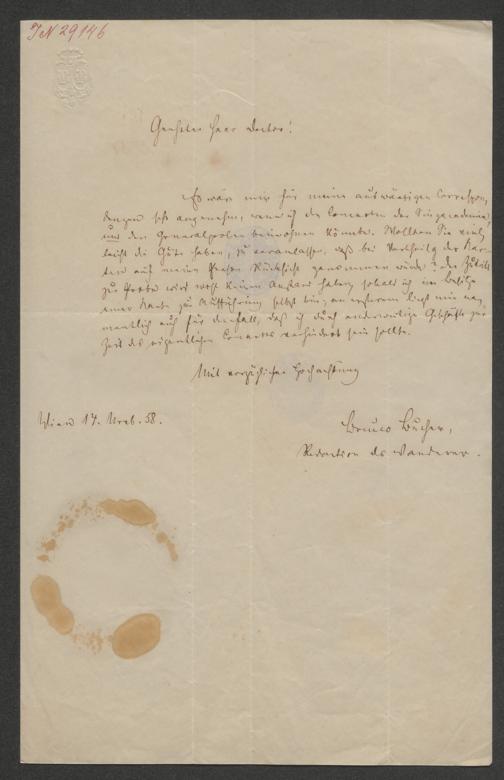 IN 29146
Geehrter Herr Doctor!
Es wär mir für meine auswärtigen Correspon-
denzen sehr angenehm, wenn ich den Concerten der Singacademie
und den Generalproben beiwohnen könnte. Wollten Sie viel-
leicht die Güte haben, zu veranlassen, daß bei Vertheilg der Kar-
ten auf meine Rücksicht genommen würde? der Zutritt
zur Probe wird wohl keinen Anstand haben, sobald ich im Besitze
einer Karte zur Aufführung selbst bin; an ersterem liegt mir na-
mentlich auch für den Fall, daß ich durch anderweitige Geschäfte zur
Zeit des eigentlichen Concertes verhindert sein sollte.
Mit vorzüglicher Hochachtung
Wien 17. Novb. 58.
Bruno Bucher,
Redaction des Wanderer.